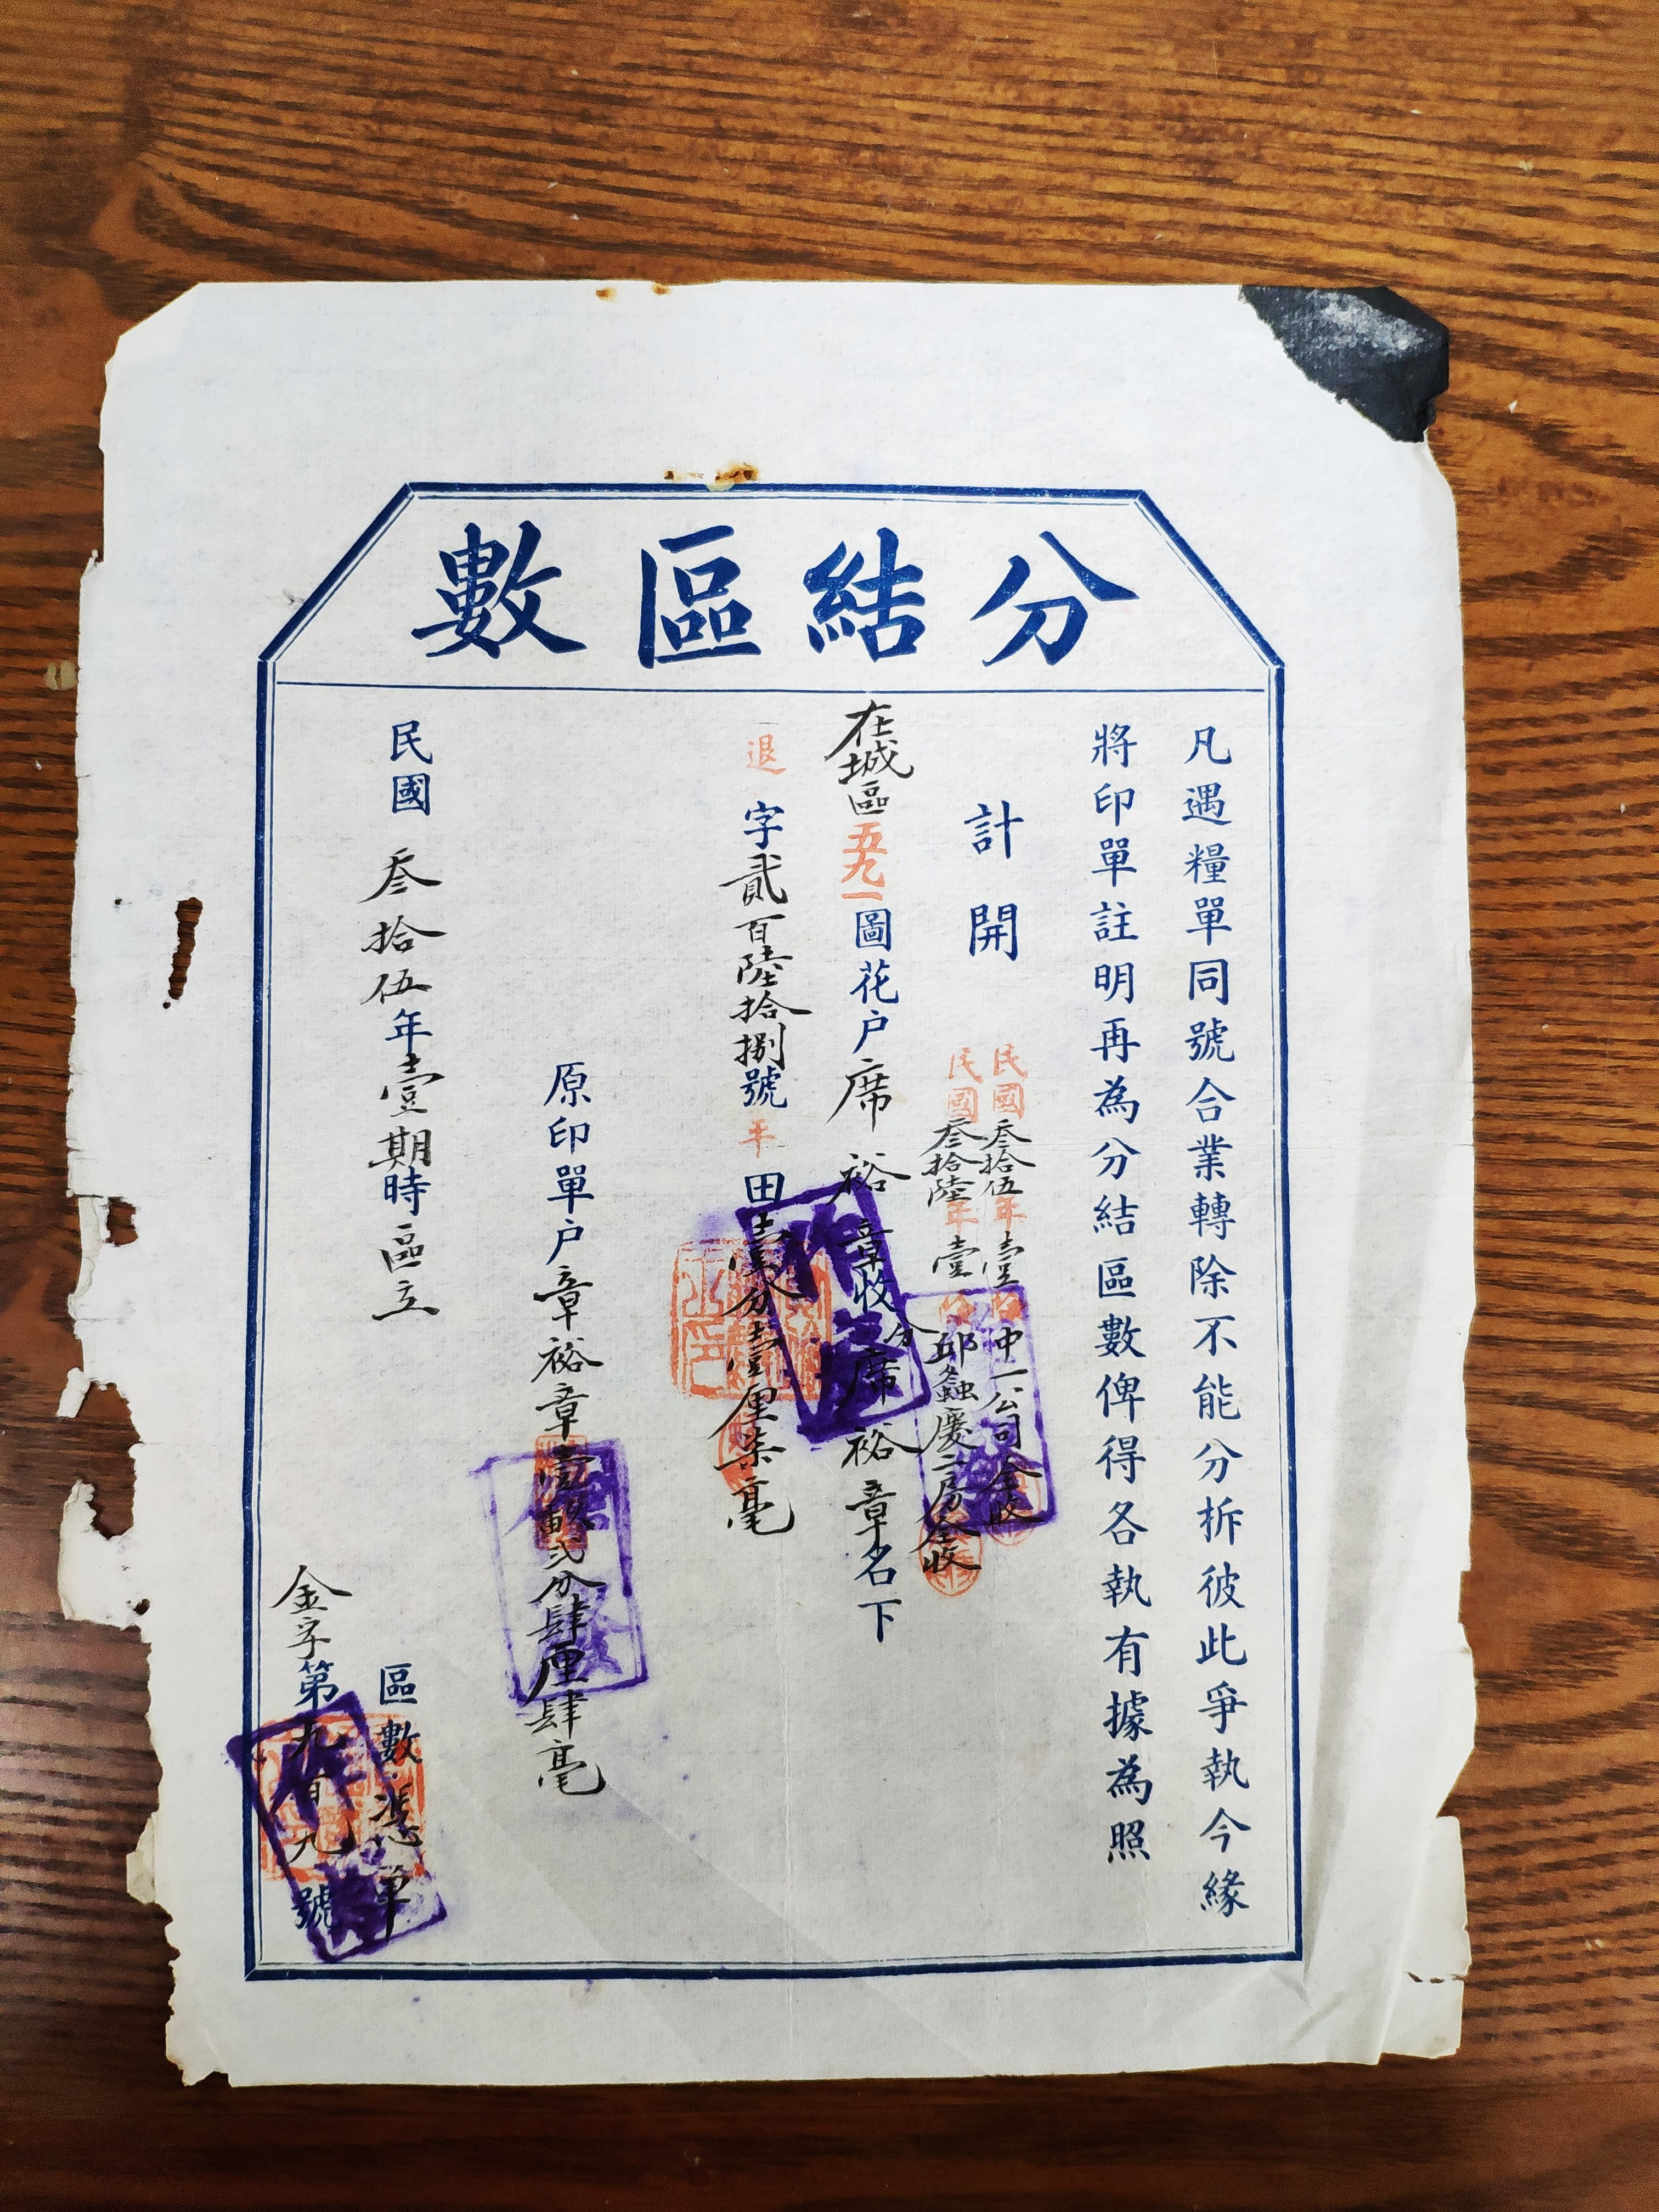 分結區數
凡遇糧單同號合業轉除不能分拆彼此爭執今緣
將印單註明再為分結區數俾得各執有據為照
計開
民國叁拾伍年壹 中一公司全收
民國叁拾陸年壹 邱螽慶二房全收
在城區五九一圖花户席裕章收分席裕章名下
退字貳百陸拾捌號平田壹分壹厘柒毫
原印單户章裕章壹畝弍分肆厘肆毫
民國叁拾伍年壹期時區立
區數憑單
金字第九百九號
作廢